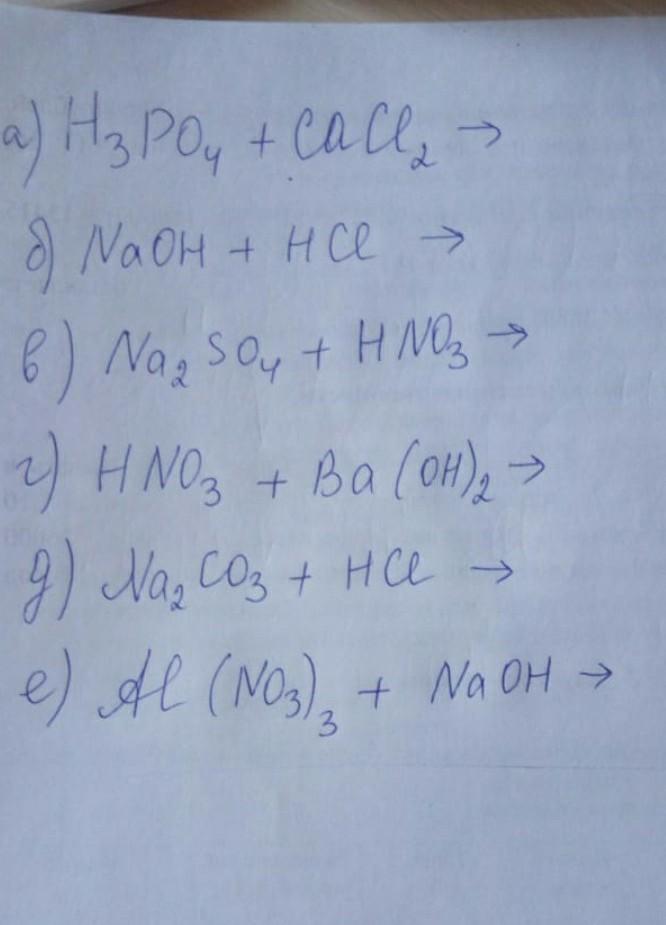 а) H₃PO₄ + CaCl₂ →
б) NaOH + HCl →
в) Na₂SO₄ + HNO₃ →
г) HNO₃ + Ba(OH)₂ →
д) Na₂CO₃ + HCl →
е) Al(NO₃)₃ + NaOH →